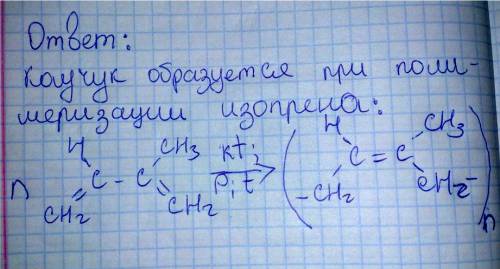 Ответ:
Каучук образуется при поли-
меризации изопрена:
n CH₂ = C H - C CH₃ = CH₂ kt; P, t → ( -CH₂ H C = C CH₃ CH₂- ) n